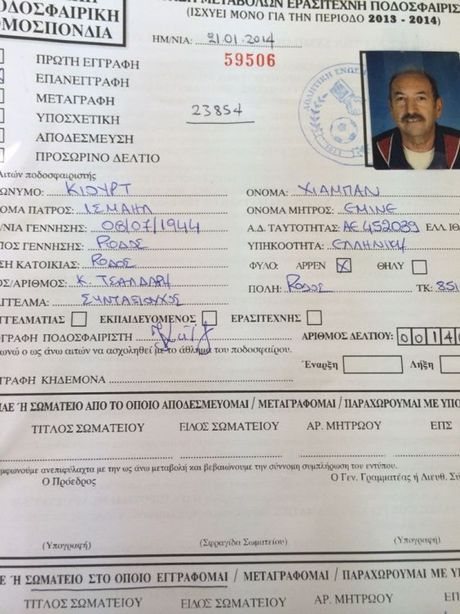 ΠΟΔΟΣΦΑΙΡΙΚΗ
ΟΜΟΣΠΟΝΔΙΑ
ΜΕΤΑΒΟΛΩΝ ΕΡΑΣΙΤΕΧΝΗ ΠΟΔΟΣΦΑΙΡΙΣ
(ΙΣΧΥΕΙ ΜΟΝΟ ΓΙΑ ΤΗΝ ΠΕΡΙΟΔΟ 2013 - 2014)
ΗΜ/ΝΙΑ: 21.01.2014
59506
ΠΡΩΤΗ ΕΓΓΡΑΦΗ
ΕΠΑΝΕΓΓΡΑΦΗ
ΜΕΤΑΓΡΑΦΗ
ΥΠΟΣΧΕΤΙΚΗ
23854
ΑΠΟΔΕΣΜΕΥΣΗ
ΠΡΟΣΩΡΙΝΟ ΔΕΛΤΙΟ
Αιτών ποδοσφαιριστής
ΩΝΥΜΟ: ΚΙΟΥΡΤ ΟΝΟΜΑ: ΧΙΑΜΠΑΝ
ΟΜΑ ΠΑΤΡΟΣ: ΙΣΜΑΗΛ ΟΝΟΜΑ ΜΗΤΡΟΣ: ΕΜΙΝΕ
/ΝΙΑ ΓΕΝΝΗΣΗΣ: 08/07/1944 Α.Δ. ΤΑΥΤΟΤΗΤΑΣ: ΑΕ 452089 ΕΛΛ. ΙΘ
ΠΟΣ ΓΕΝΝΗΣΗΣ: ΡΟΔΟΣ ΥΠΗΚΟΟΤΗΤΑ: ΕΛΛΗΝΙΚΗ
ΣΗ ΚΑΤΟΙΚΙΑΣ: ΡΟΔΟΣ ΦΥΛΟ: ΑΡΡΕΝ X ΘΗΛΥ
ΟΣ/ΑΡΙΘΜΟΣ: Κ. ΤΣΑΛΔΑΡΗ ΠΟΛΗ: ΡΟΔΟΣ ΤΚ: 851
ΓΓΕΛΜΑ: ΣΥΝΤΑΞΙΟΥΧΟΣ
ΓΓΕΛΜΑΤΙΑΣ ΕΚΠΑΙΔΕΥΟΜΕΝΟΣ ΕΡΑΣΙΤΕΧΝΗΣ
ΓΡΑΦΗ ΠΟΔΟΣΦΑΙΡΙΣΤΗ ΑΡΙΘΜΟΣ ΔΕΛΤΙΟΥ: 0014
ωνώ ο ως άνω αιτών να ασχοληθεί με το άθλημα του ποδοσφαίρου.
Έναρξη Λήξη
ΓΡΑΦΗ ΚΗΔΕΜΟΝΑ
Ή ΣΩΜΑΤΕΙΟ ΑΠΟ ΤΟ ΟΠΟΙΟ ΑΠΟΔΕΣΜΕΥΟΜΑΙ / ΜΕΤΑΓΡΑΦΟΜΑΙ / ΠΑΡΑΧΩΡΟΥΜΑΙ ΜΕ ΥΠΟ
ΤΙΤΛΟΣ ΣΩΜΑΤΕΙΟΥ ΕΙΔΟΣ ΣΩΜΑΤΕΙΟΥ ΑΡ. ΜΗΤΡΩΟΥ ΕΠΣ
μφωνούμε ανεπιφύλακτα με την ως άνω μεταβολή και βεβαιώνουμε την σύννομη συμπλήρωση του εντύπου.
Ο Πρόεδρος Ο Γεν. Γραμματέας ή Διευθ. Σύ
(Υπογραφή) (Σφραγίδα Σωματείου) (Υπογραφή)
Ή ΣΩΜΑΤΕΙΟ ΣΤΟ ΟΠΟΙΟ ΕΓΓΡΑΦΟΜΑΙ / ΜΕΤΑΓΡΑΦΟΜΑΙ / ΠΑΡΑΧΩΡΟΥΜΑΙ ΜΕ Υ
ΤΙΤΛΟΣ ΣΩΜΑΤΕΙΟΥ ΕΙΔΟΣ ΣΩΜΑΤΕΙΟΥ ΑΡ. ΜΗΤΡΩΟΥ ΕΠΣ